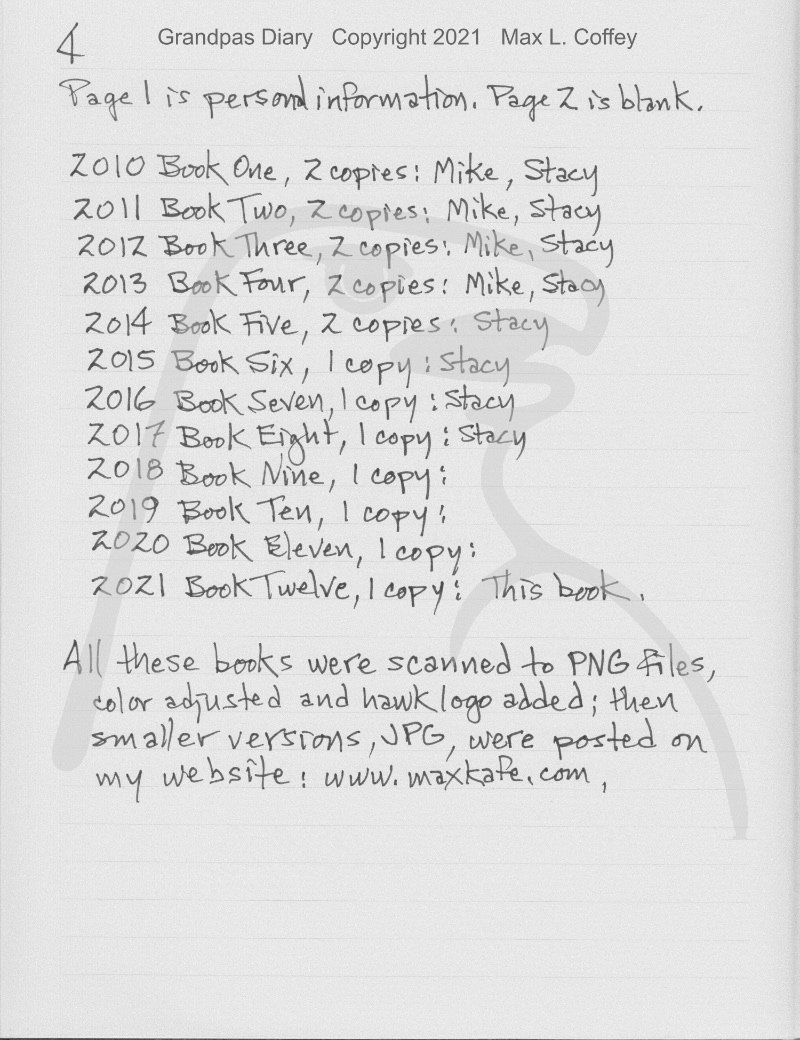 Grandpas Diary Copyright 2021 Max L. Coffey
4
Page 1 is personal information. Page 2 is blank.
2010 Book One, 2 copies: Mike, Stacy
2011 Book Two, 2 copies: Mike, Stacy
2012 Book Three, 2 copies: Mike, Stacy
2013 Book Four, 2 copies: Mike, Stacy
2014 Book Five, 2 copies: Stacy
2015 Book Six, 1 copy: Stacy
2016 Book Seven, 1 copy: Stacy
2017 Book Eight, 1 copy: Stacy
2018 Book Nine, 1 copy:
2019 Book Ten, 1 copy:
2020 Book Eleven, 1 copy:
2021 Book Twelve, 1 copy: This book.
All these books were scanned to PNG files,
color adjusted and hawk logo added; then
smaller versions, JPG, were posted on
my website: www.maxkafe.com,